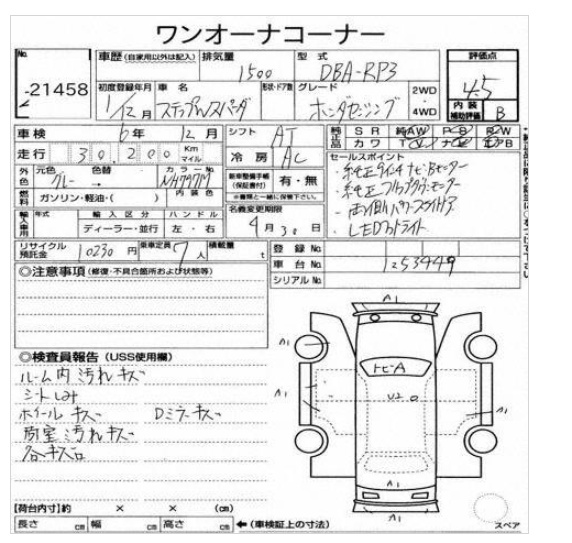 ワンオーナコーナー
No. 車歴 (自家用以外は記入) 排気量 型式 評価点
-21458 1500 DBA-RP3 4.5
初度登録年月 車名 形状・ドア数 グレード 2WD
1/12月 ステップワゴンスパーダ ホンダセンシング ・ 内装
4WD 補助評価 B
車検 6年 12月 シフト AT 純正品 SR 純AW PS PW
カワ TV ナビ エアB
走行 30,200 Km マイル 冷房 AC セールスポイント
外色 元色 色替 カラーNo.
グレー → NH797M
内装色
新車整備手帳 (保証書付) 有・無
※書類と一緒に保管下さい。
燃料 ガソリン・軽油・( )
名義変更期限
4月30日
・純正9インチナビBモニター
・純正フリップダウンモニター
・両側パワースライドドア
・LEDヘッドライト
輸入車用 年式 輸入区分 ハンドル
ディーラー・並行 左・右
リサイクル預託金 10230円 乗車定員 7人 積載量 t
登録No.
車台No. 1253449
シリアルNo.
◎注意事項 (修復・不具合箇所および状態等)
◎検査員報告 (USS使用欄)
ルーム内汚れキズ
シートしみ
ホイールキズ Dミラーキズ
荷室汚れキズ
各キズ凹
A1
A1
A1
トビA
A1
A1
A1
A
A1
スペア
【荷台内寸】約 × × (cm)
長さ cm 幅 cm 高さ cm ←(車検証上の寸法)